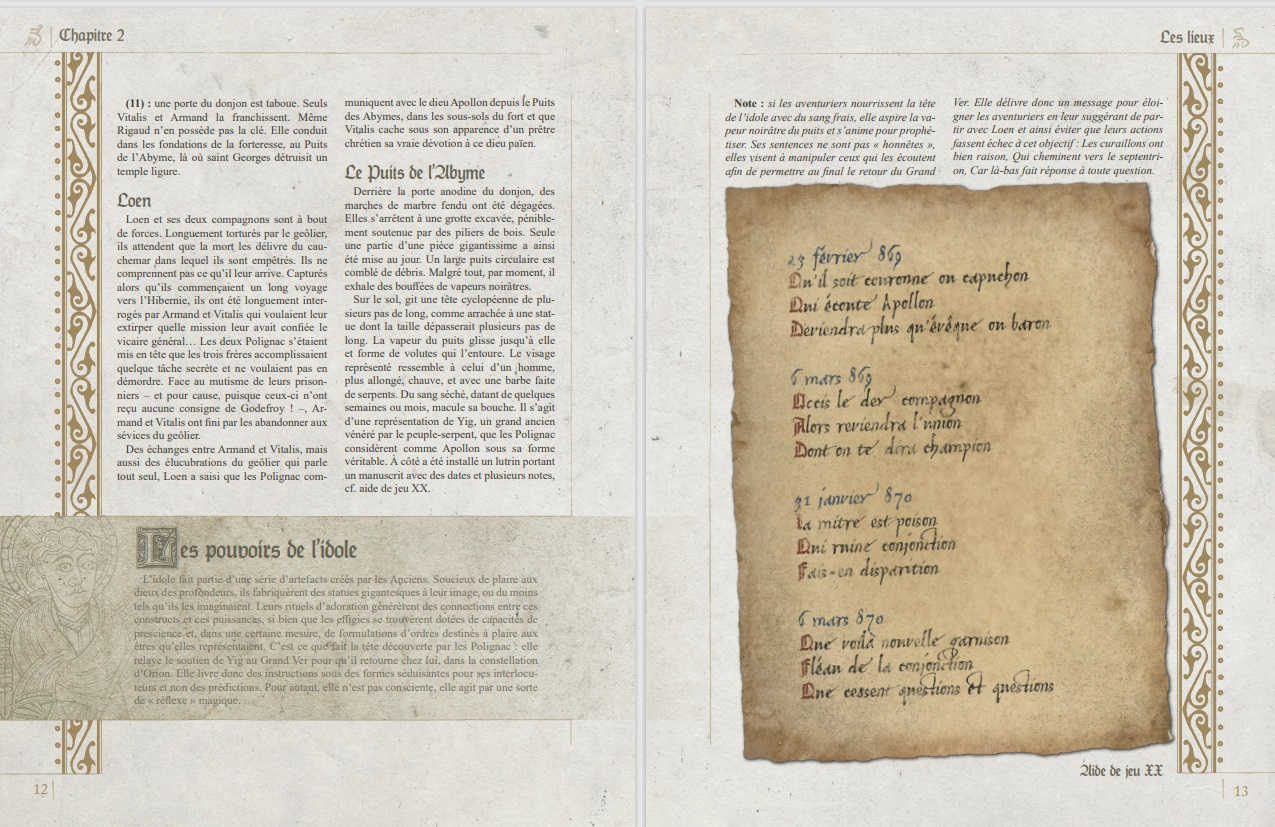 Chapitre 2
(11) : une porte du donjon est taboue. Seuls
Vitalis et Armand la franchissent. Même
Rigaud n'en possède pas la clé. Elle conduit
dans les fondations de la forteresse, au Puits
de l'Abyme, là où saint Georges détruisit un
temple ligure.
Loen
Loen et ses deux compagnons sont à bout
de forces. Longuement torturés par le geôlier,
ils attendent que la mort les délivre du cau-
chemar dans lequel ils sont empêtrés. Ils ne
comprennent pas ce qu'il leur arrive. Capturés
alors qu'ils commençaient un long voyage
vers l'Hibernie, ils ont été longuement inter-
rogés par Armand et Vitalis qui voulaient leur
extirper quelle mission leur avait confiée le
vicaire général… Les deux Polignac s'étaient
mis en tête que les trois frères accomplissaient
quelque tâche secrète et ne voulaient pas en
démordre. Face au mutisme de leurs prison-
niers – et pour cause, puisque ceux-ci n'ont
reçu aucune consigne de Godefroy ! –, Ar-
mand et Vitalis ont fini par les abandonner aux
sévices du geôlier.
Des échanges entre Armand et Vitalis, mais
aussi des élucubrations du geôlier qui parle
tout seul, Loen a saisi que les Polignac com-
muniquent avec le dieu Apollon depuis le Puits
des Abymes, dans les sous-sols du fort et que
Vitalis cache sous son apparence d'un prêtre
chrétien sa vraie dévotion à ce dieu païen.
Le Puits de l'Abyme
Derrière la porte anodine du donjon, des
marches de marbre fendu ont été dégagées.
Elles s'arrêtent à une grotte excavée, pénible-
ment soutenue par des piliers de bois. Seule
une partie d'une pièce gigantissime a ainsi
été mise au jour. Un large puits circulaire est
comblé de débris. Malgré tout, par moment, il
exhale des bouffées de vapeurs noirâtres.
Sur le sol, gît une tête cyclopéenne de plu-
sieurs pas de long, comme arrachée à une sta-
tue dont la taille dépasserait plusieurs pas de
long. La vapeur du puits glisse jusqu'à elle
et forme de volutes qui l'entoure. Le visage
représenté ressemble à celui d'un homme,
plus allongé, chauve, et avec une barbe faite
de serpents. Du sang séché, datant de quelques
semaines ou mois, macule sa bouche. Il s'agit
d'une représentation de Yig, un grand ancien
vénéré par le peuple-serpent, que les Polignac
considèrent comme Apollon sous sa forme
véritable. À côté a été installé un lutrin portant
un manuscrit avec des dates et plusieurs notes,
cf. aide de jeu XX.
Les pouvoirs de l'idole
L'idole fait partie d'une série d'artefacts créés par les Anciens. Soucieux de plaire aux
dieux des profondeurs, ils fabriquèrent des statues gigantesques à leur image, ou du moins
tels qu'ils les imaginaient. Leurs rituels d'adoration générèrent des connections entre ces
constructs et ces puissances, si bien que les effigies se trouvèrent dotées de capacités de
prescience et, dans une certaine mesure, de formulations d'ordres destinés à plaire aux
êtres qu'elles représentaient. C'est ce que fait la tête découverte par les Polignac : elle
relaye le soutien de Yig au Grand Ver pour qu'il retourne chez lui, dans la constellation
d'Orion. Elle livre donc des instructions sous des formes séduisantes pour ses interlocu-
teurs et non des prédictions. Pour autant, elle n'est pas consciente, elle agit par une sorte
de « réflexe » magique.
12
Les lieux
Note : si les aventuriers nourrissent la tête
de l'idole avec du sang frais, elle aspire la va-
peur noirâtre du puits et s'anime pour prophé-
tiser. Ses sentences ne sont pas « honnêtes »,
elles visent à manipuler ceux qui les écoutent
afin de permettre au final le retour du Grand
Ver. Elle délivre donc un message pour éloi-
gner les aventuriers en leur suggérant de par-
tir avec Loen et ainsi éviter que leurs actions
fassent échec à cet objectif : Les curaillons ont
bien raison, Qui cheminent vers le septentri-
on, Car là-bas fait réponse à toute question.
23 février 869
Qu'il soit couronne ou capuchon
Qui écoute Apollon
Deviendra plus qu'évêque ou baron
6 mars 869
Occis le der compagnon
Alors reviendra l'union
Dont on te dira champion
31 janvier 870
La mitre est poison
Qui ruine conjonction
Fais-en disparition
6 mars 870
Que voilà nouvelle garnison
Fléau de la conjonction
Que cessent questions et questions
Aide de jeu XX
13